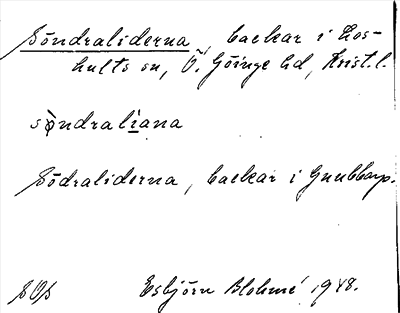 Söndraliderna, backar i Los-
hults sn, Ö. Göinge hd, Krist. l.
sǫ̀ndralìana
Södraliderna, backar i Gnubbarp.
Esbjörn Blohmé 1948.